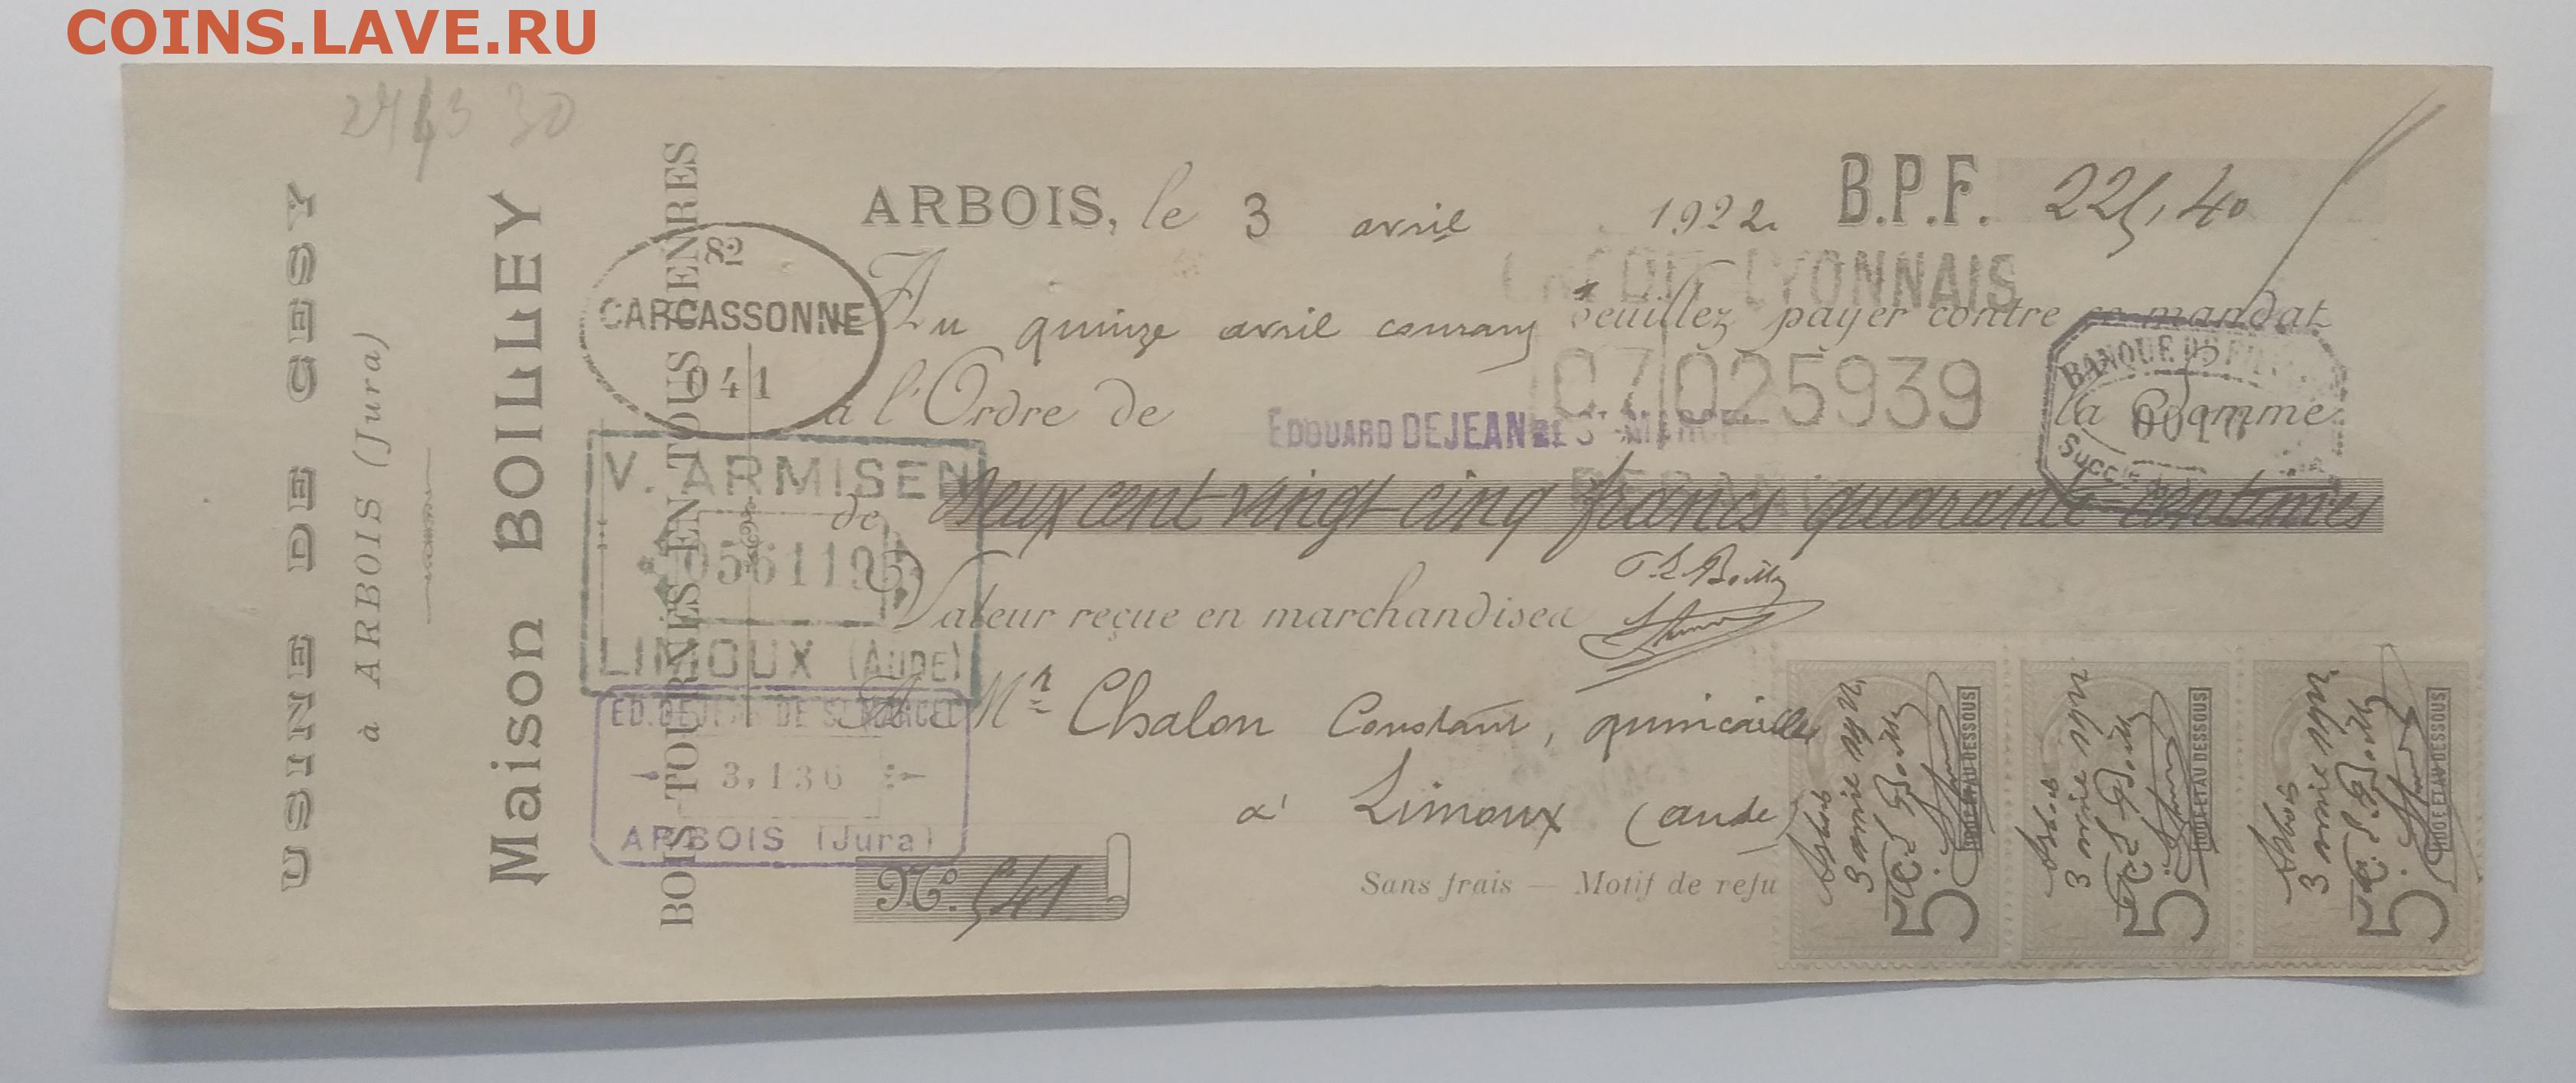 COINS.LAVE.RU
USINE DE CESY
à ARBOIS (Jura)
Maison BOILLEY
BOIS TOURNÉS EN TOUS GENRES
82
CARCASSONNE
041
ARBOIS, le 3 avril 1922 B.P.F. 225,40
CRÉDIT LYONNAIS
Au quinze avril courant veuillez payer contre ce mandat
07 025939
à l'Ordre de EDOUARD DEJEAN DE ST MARCEL la Somme
BANQUE DE FRANCE
de Deux cent vingt-cinq francs quarante centimes
V. ARMISEN
LIMOUX (AUDE)
Valeur reçue en marchandises
A Mr Chalon Constant, quincailler
à Limoux (aude)
ED. DEJEAN DE ST MARCEL
3,136
ARBOIS (Jura)
No. 541
Sans frais — Motif de refu
Arbois
3 avril 1922
5c
100F ET AU DESSOUS
Arbois
3 avril 1922
5c
100F ET AU DESSOUS
Arbois
3 avril 1922
5c
100F ET AU DESSOUS